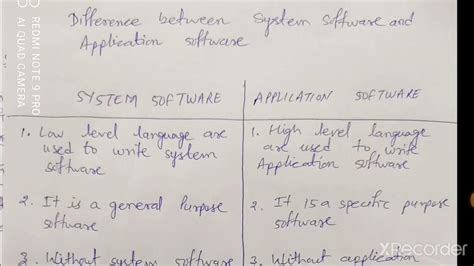 Difference between System Software and
Application software
SYSTEM SOFTWARE
1. Low level language are
used to write system
software
2. It is a general Purpose
software
3. Without system software
APPLICATION SOFTWARE
1. High level language
are used to write
Application software
2. It is a specific purpose
software
3. Without application
REDMI NOTE 9 PRO
AI QUAD CAMERA
XRecorder